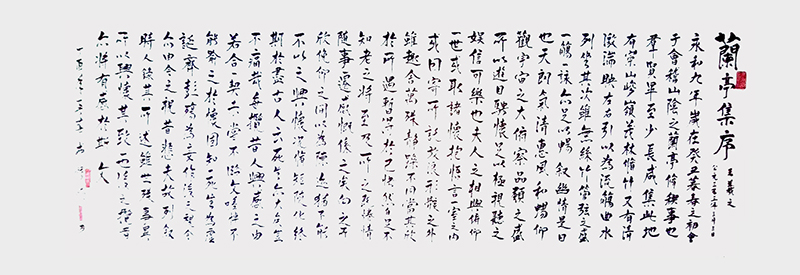 蘭亭集序
王羲之
永和九年歲在癸丑暮春之初會
于會稽山陰之蘭亭脩禊事也
群賢畢至少長咸集此地
有崇山峻嶺茂林脩竹又有清
激湍映左右引以為流觴曲水
列坐其次雖無絲竹管弦之盛
一觴一詠亦足以暢敘幽情是日
也天朗氣清惠風和暢仰
觀宇宙之大俯察品類之盛
所以遊目騁懷足以極視聽之
娛信可樂也夫人之相與俯仰
一世或取諸懷抱悟言一室之內
或因寄所託放浪形骸之外
雖趣舍萬殊靜躁不同當其欣
於所遇暫得於己快然自足不
知老之將至及其所之既倦情
隨事遷感慨係之矣向之所
欣俛仰之間以為陳迹猶不能
不以之興懷況脩短隨化終
期於盡古人云死生亦大矣豈
不痛哉每攬昔人興感之由
若合一契未嘗不臨文嗟悼不
能喻之於懷固知一死生為虛
誕齊彭殤為妄作後之視今
亦由今之視昔悲夫故列敘
時人錄其所述雖世殊事異
所以興懷其致一也後之攬者
亦將有感於斯文